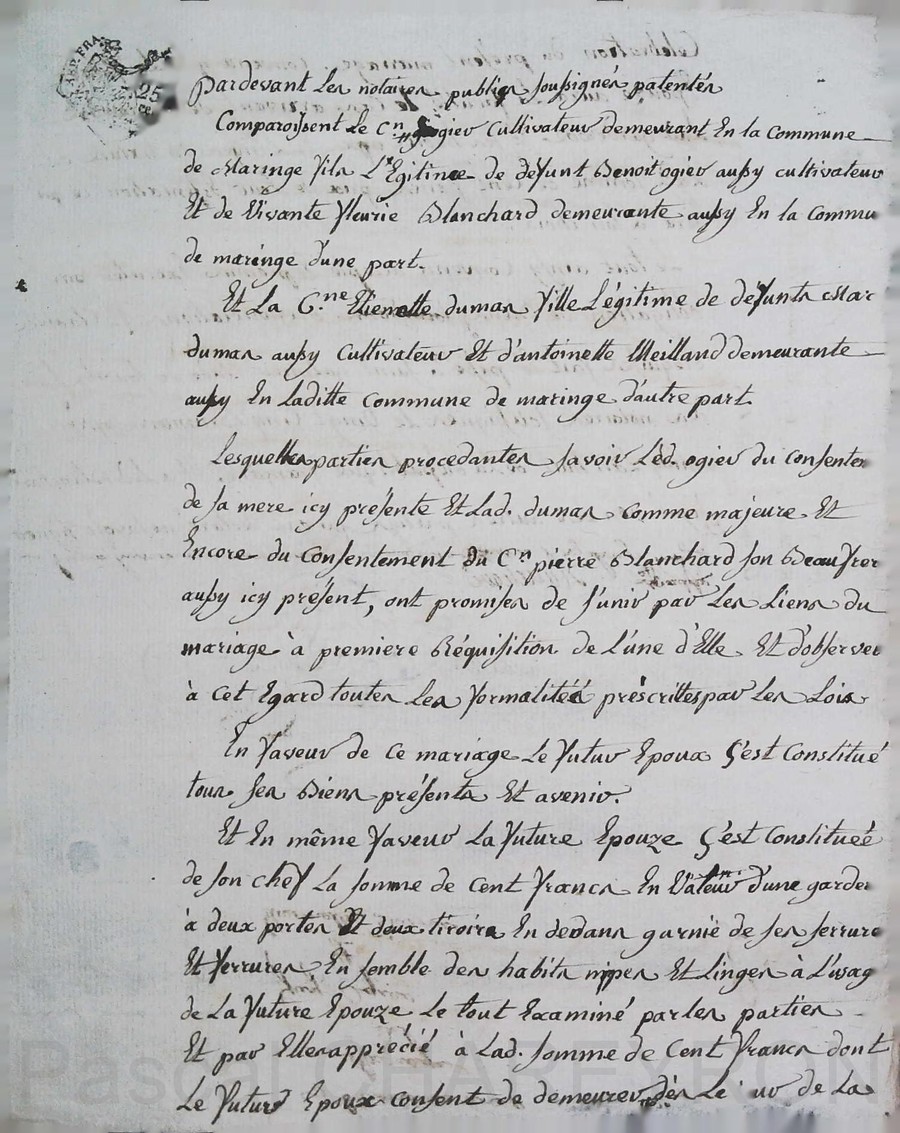 REP. FRA.
25
Pardevant Les notaires publics soussignés patentés
Comparoissent Le C.n ogier Cultivateur demeurant En la Commune
de Maringe fils L'Egitime de defunt Benoit ogier aussy cultivateur
Et de Vivante fleurie Blanchard demeurante aussy En la Commu
de maringe d'une part.
Et La C.ne Etiennette dumas fille Légitime de defunts Mar
dumas aussy Cultivateur Et d'antoinette Meilland demeurante
aussy En laditte Commune de maringe d'autre part.
Lesquelles parties procedantes savoir Led. ogier du Consente
de sa mere icy présente Et Lad. dumas comme majeure Et
Encore du Consentement du C.n pierre Blanchard son Beaufrer
aussy icy présent, ont promises de s'unir par Les Liens du
mariage à premiere Réquisition de L'une d'Elle Et d'observer
à Cet Egard toutes Les formalitéé préscrittes par Les Lois
En faveur de Ce mariage Le futur Epoux C'est Constitué
tous ses Biens présents Et avenir.
Et En même faveur La future Epouze C'est Constitueé
de son chef La somme de Cent francs En Valeur d'une garder
à deux portes Et deux tiroirs En dedans garnie de ses serrure
Et ferrures En semble des habits nippes Et Linges à L'usag
de La future Epouze Le tout Examiné par les parties
Et par Elles apprécié à Lad. somme de Cent francs dont
Le futur Epoux consent de demeurer dès Le ur de La
Pascal CHAREYRON